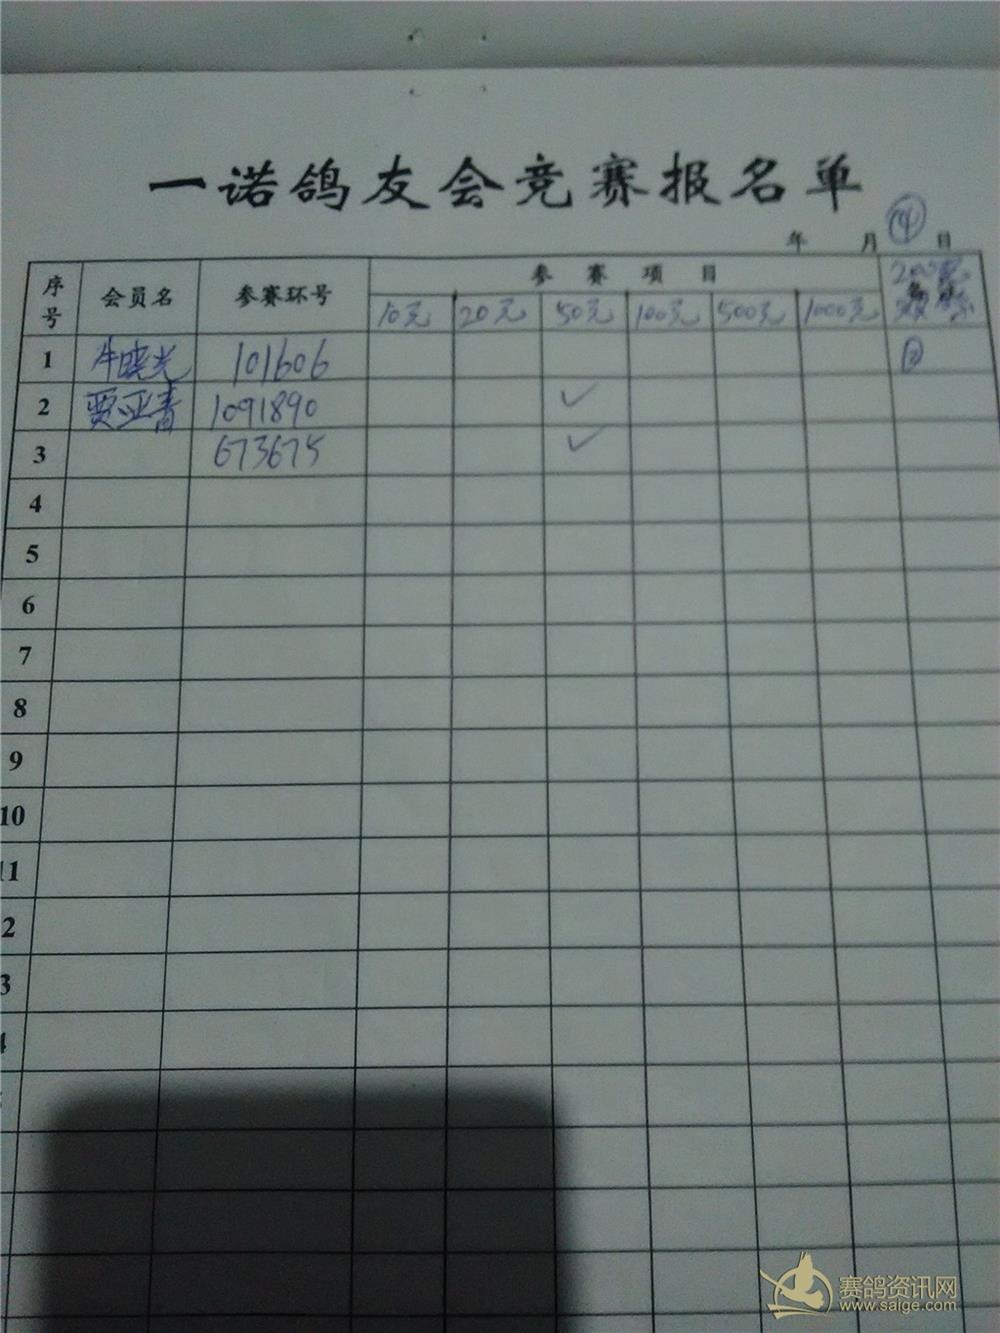 一诺鸽友会竞赛报名单
年 月 ④ 日
序号 会员名 参赛环号 参赛项目
10元 20元 50元 100元 500元 1000元
1 牛晓光 101606 ②
2 贾亚青 1091890 ✓
3 673675 ✓
4
5
6
7
8
9
10
11
2
3
4
赛鸽资讯网
www.saige.com